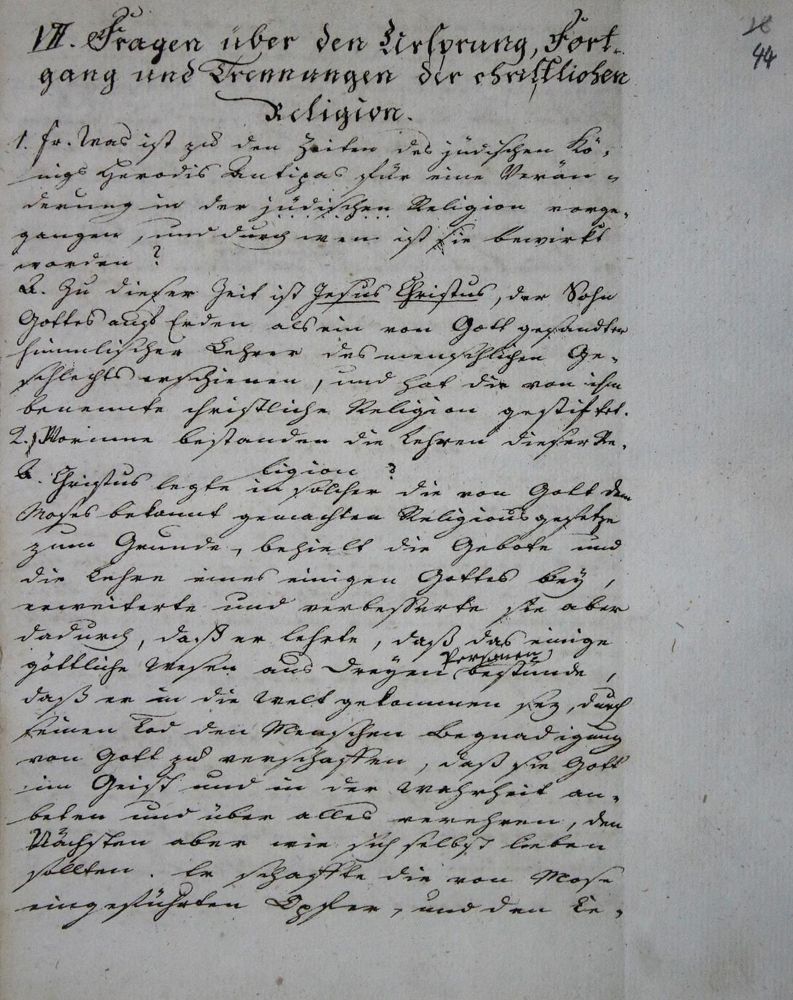 18
44
VII. Fragen über den Ursprung, Fort-
gang und Trennungen der christlichen
Religion.
1. Fr. Was ist zu den Zeiten des jüdischen Kö-
nigs Herodis Antipas für eine Verän-
derung in der jüdischen Religion vorge-
gangen, und durch wen ist sie bewirkt
worden?
A. Zu dieser Zeit ist Jesus Christus, der Sohn
Gottes aufs Erden als ein von Gott gesandter
himmlischer Lehrer des menschlichen Ge-
schlechts erschienen, und hat die von ihm
benennte christliche Religion gestiftet.
2. Worinne bestanden die Lehren dieser Re-
ligion?
A. Christus legte in solcher die von Gott dem
Moses bekannt gemachten Religionsgesetze
zum Grunde, behielt die Gebote und
die Lehre eines einigen Gottes bey,
erweiterte und verbesserte sie aber
dadurch, daß er lehrte, daß das einige
göttliche Wesen aus dreyen Personen bestünde,
daß er in die Welt gekommen sey, durch
seinen Tod den Menschen Begnadigung
von Gott zu verschaffen, daß sie Gott
im Geist und in der Wahrheit an-
beten und über alles verehren, den
Nächsten aber wie sich selbst lieben
sollten. Er schaffte die von Mose
eingeführten Opfer, und den Ce-